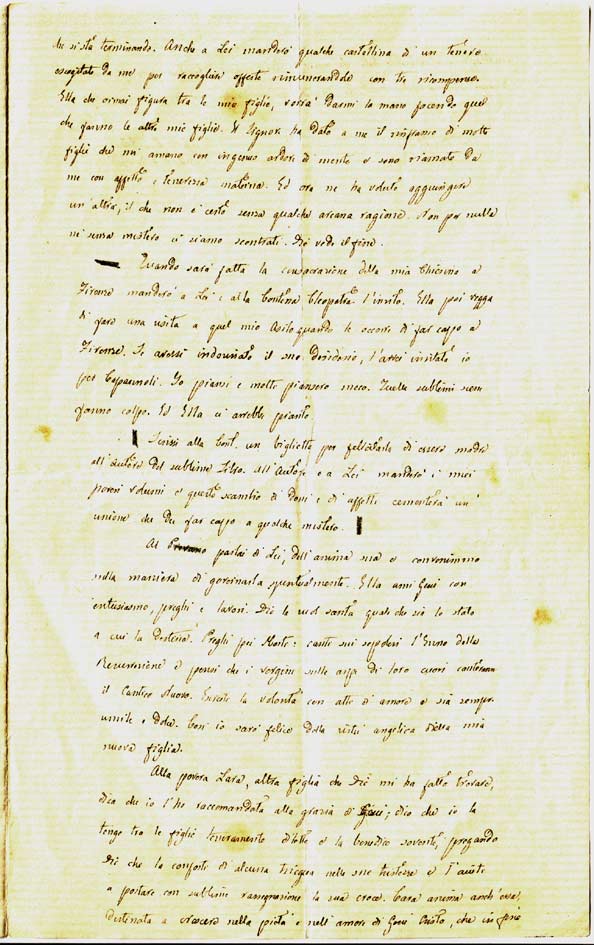 che si stà terminando. Anche a Lei manderò qualche cartellina di un tenore
escogitato da me per raccogliere offerte rimunerandole con tre ricompense.
Ella che ormai figura tra le mie figlie, vorrà darmi la mano facendo quel
che fanno le altre mie figlie. Il Signore ha dato a me il di molte
figlie che mi amano con ingenuo ardore di mente e sono riamate da
me con affetto e tenerezza materna. Ed ora ne ha voluto aggiungere
un'altra, il che non è certo senza qualche arcana ragione. Non per nulla
nè senza mistero ci siamo scontrati. Dio vede il fine.
Quando sarà fatta la consacrazione della mia Chiesina a
Firenze manderò a Lei e alla Contessa Cleopatra l'invito. Ella poi vegga
di fare una visita a quel mio Asilo quando le occorre di far capo a
Firenze. Se avessi indovinato il suo desiderio, l'avrei invitata io
pei Cappuccioli. Io piansi e molti piansero meco. Quelle sublimi scene
fanno colpo. Ed Ella ci avrebbe pianto.
Scrissi alla Cont. un biglietto per felicitarla di essere madre
all'autore del sublime libro. All'Autore e a Lei manderò i miei
poveri volumi e questo scambio di doni e di affetti cementerà un'
unione che Dee far capo a qualche mistero.
Al parlai di Lei, dell'anima sua e convenimmo
sulla maniera di governarla spiritualmente. Ella ami Gesù con
entusiasmo, preghi e lavori. Dio la vuol santa quale che sia lo stato
a cui la destina. Preghi pei Morti: canti sui sepolcri l'Inno della
Resurrezione e pensi che i vergini sulle arpe di loro cuori
il Cantico Nuovo. Eserciti la volontà con atti di amore e sia sempre
umile e dolce. Così io sarò felice della virtù angelica della mia
nuova figlia.
Alla povera Lara, altra figlia che Dio mi ha fatto trovare,
dica che io l'ho raccomandata alla grazia di Gesù; dica che io la
tengo tra le figlie teneramente dilette e la benedico sovente, pregando
Dio che la conforti di alcuna nelle sue tristezze e l'aiuti
a portare con sublime rassegnazione la sua croce. Cara anima anch'essa
destinata a crescere nella pietà e nell'amore di Gesù Cristo, che in